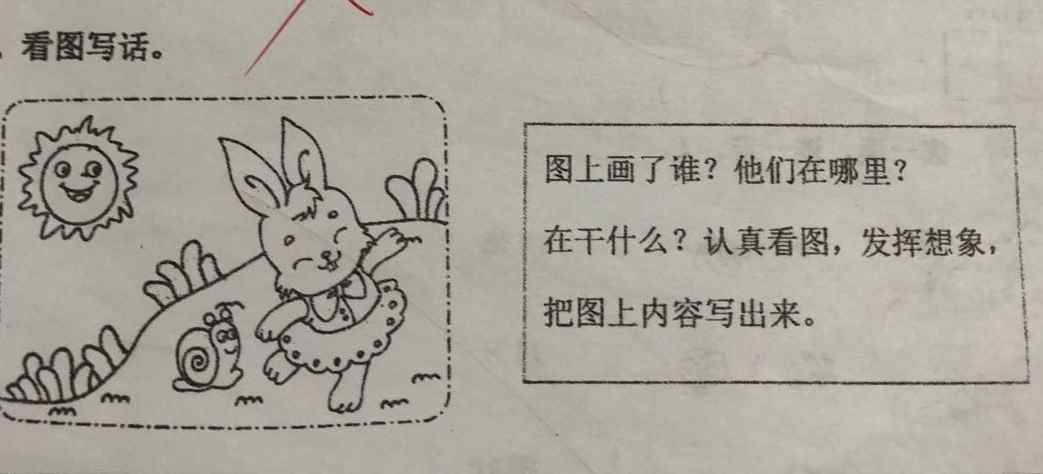 看图写话。
图上画了谁？他们在哪里？
在干什么？认真看图，发挥想象，
把图上内容写出来。